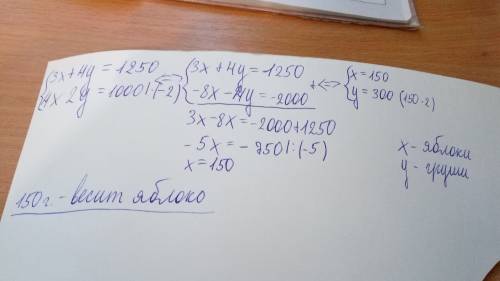 {3x+4y=1250
{4x 2y=1000|·(-2) <=> {3x+4y=1250
{-8x-4y=-2000 + <=> {x=150
{y=300 (150·2)
3x-8x=-2000+1250
-5x=-750|:(-5)
x=150
x- яблоки
y- груши
150г.-весит яблоко